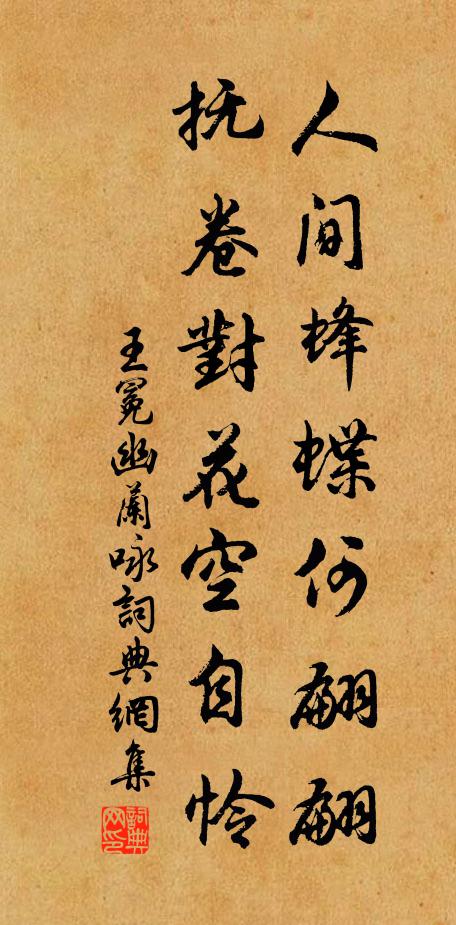 人間蜂蝶何翩翩
抚卷對花空自怜
王冕幽蘭咏詞典網集
詞典网印